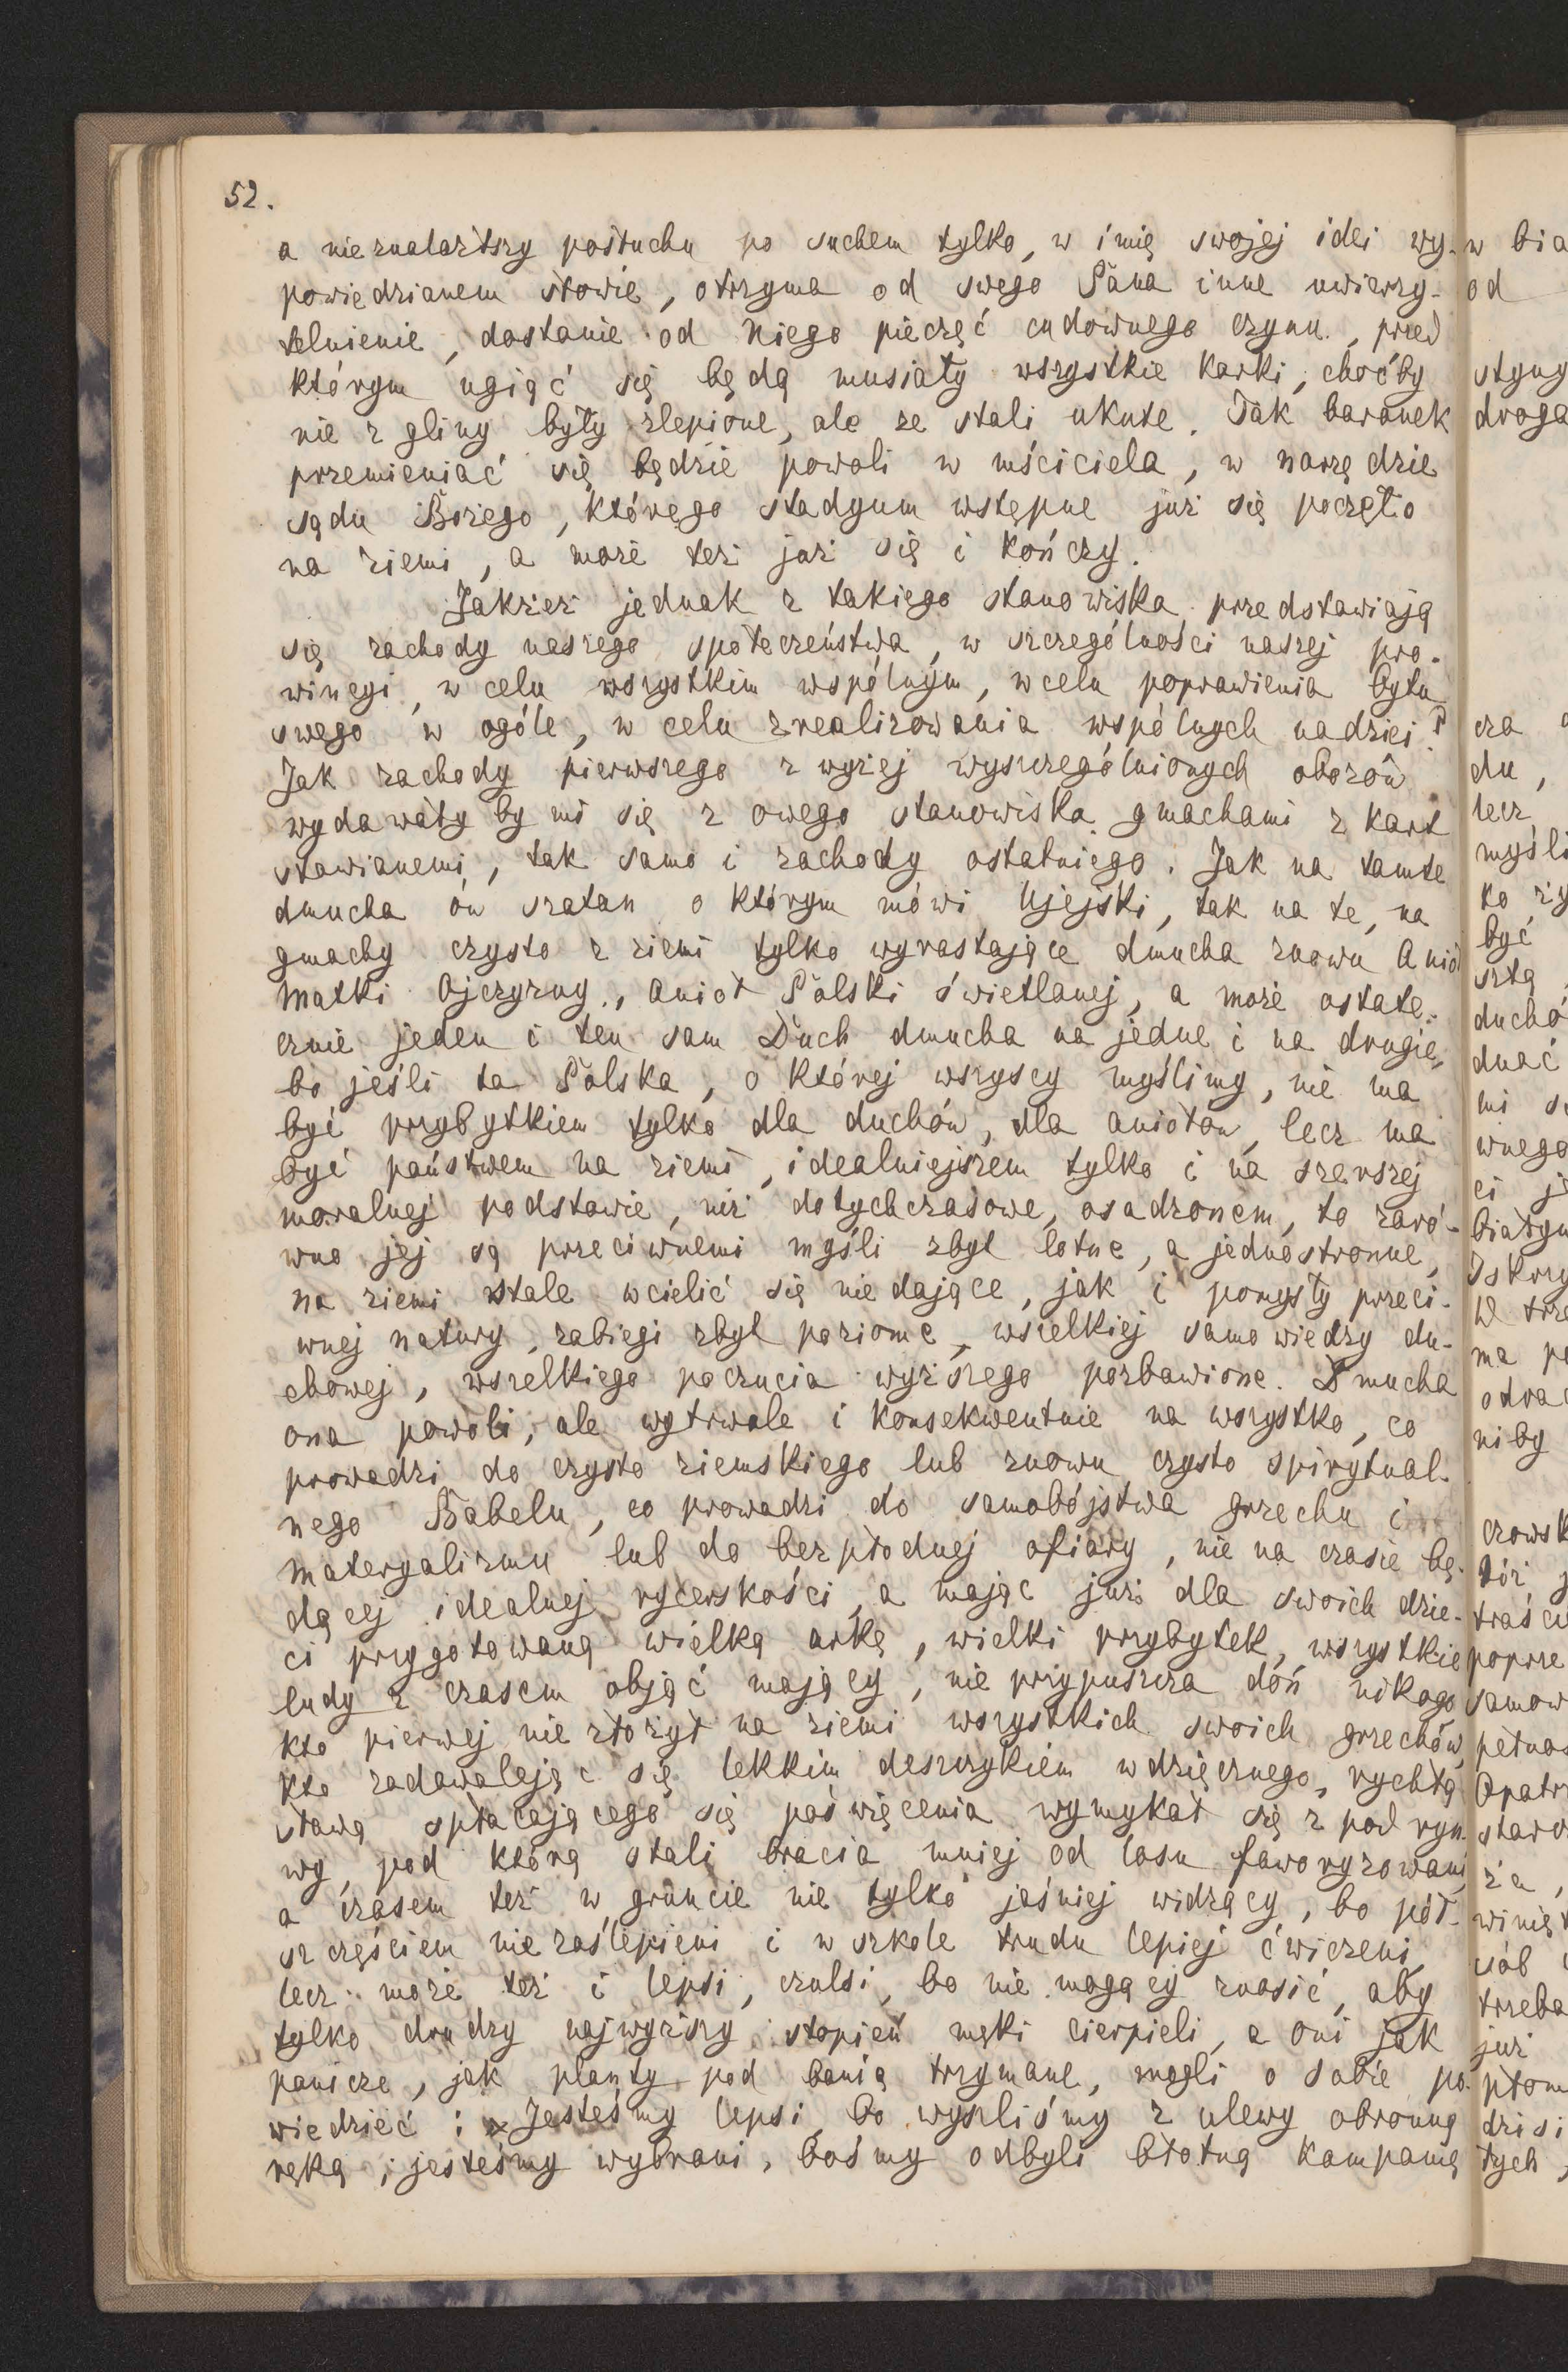 52.
a nieznalazłszy posłuchu po suchem tylko, w imię swojej idei wy-
powiedzianem słowie, otrzyma od swego Pana inne uwierzy-
telnienie, dostanie od Niego pieczęć cudownego czynu, przed
którym ugiąć się będą musiały wszystkie karki, choćby
nie z gliny były zlepione, ale ze stali ukute. Tak baranek
przemieniać się będzie powoli w mściciela, w narzędzie
sądu Bożego, którego stadyum wstępne już się poczęło
na ziemi, a może też już się i kończy.
Jakżeż jednak z takiego stanowiska przedstawiają
się zachody naszego społeczeństwa, w szczególności naszej pro-
wincyi, w celu wszystkim wspólnym, w celu poprawienia bytu
swego w ogóle, w celu zrealizowania wspólnych nadziei?
Jak zachody pierwszego z wyżej wyszczególnionych obozów
wydawały by mi się z owego stanowiska gmachami z kart
stawianemi, tak samo i zachody ostatniego. Jak na tamte
dmucha ów szatan o którym mówi Ujejski, tak na te, na
gmachy czysto z ziemi tylko wyrastające dmucha znowu Anioł
Matki Ojczyzny, Anioł Polski świetlanej, a może ostate-
cznie jeden i ten sam Duch dmucha na jedne i na drugie,
bo jeśli ta Polska, o której wszyscy myślimy, nie ma
być przybytkiem tylko dla duchów, dla aniołów, lecz ma
być państwem na ziemi, idealniejszem tylko i na szerszej
moralnej podstawie, niż dotychczasowe, osadzonem, to zaró-
wno jej są przeciwnemi myśli zbyt lotne, a jednostronne,
na ziemi stale wcielić się nie dające, jak i pomysły przeci-
wnej natury, zabiegi zbyt poziome, wszelkiej samowiedzy du-
chowej, wszelkiego poczucia wyższego pozbawione. Dmucha
ona powoli, ale wytrwale i konsekwentnie na wszystko, co
prowadzi do czysto ziemskiego lub znowu czysto spirytual-
nego Babelu, co prowadzi do samobójstwa grzechu i
materyalizmu lub do bezpłodnej ofiary, nie na czasie bę-
dącej idealnej rycerskości, a mając już dla swoich dzie-
ci przygotowaną wielką arkę, wielki przybytek, wszystkie
ludy z czasem objąć mający, nie przypuszcza doń nikogo
kto pierwej nie złożył na ziemi wszystkich swoich grzechów,
kto zadawalając się lekkim deszczykiem wdzięcznego, rychłą
sławą spłacającego się poświęcenia wymykał się z pod ryn-
wy, pod którą stali bracia mniej od losu faworyzowani,
a czasem też w gruncie nie tylko jaśniej widzący, bo pół-
szczęściem niezaślepieni i w szkole trudu lepiej ćwiczeni,
lecz może też i lepsi, czulsi, bo nie mogący znosić, aby
tylko drudzy najwyższy stopień męki cierpieli, a oni jak
panicze, jak planty pod banią trzymane, mogli o sobie po-
wiedzieć: Jesteśmy lepsi, bo wyszliśmy z ulewy obronną
ręką; jesteśmy wybrani, bośmy odbyli błotną kampanię
w bia
od
styny
droga
cza
du,
lecz
myśli
ko
być
sztą
duchó
dnać
mi
wnego
ci
białym
Iskrzy
W
ma
niby
traści
poprze
samow
Opatr
że,
sób
trzeba
już
płom
dzisi
tych,